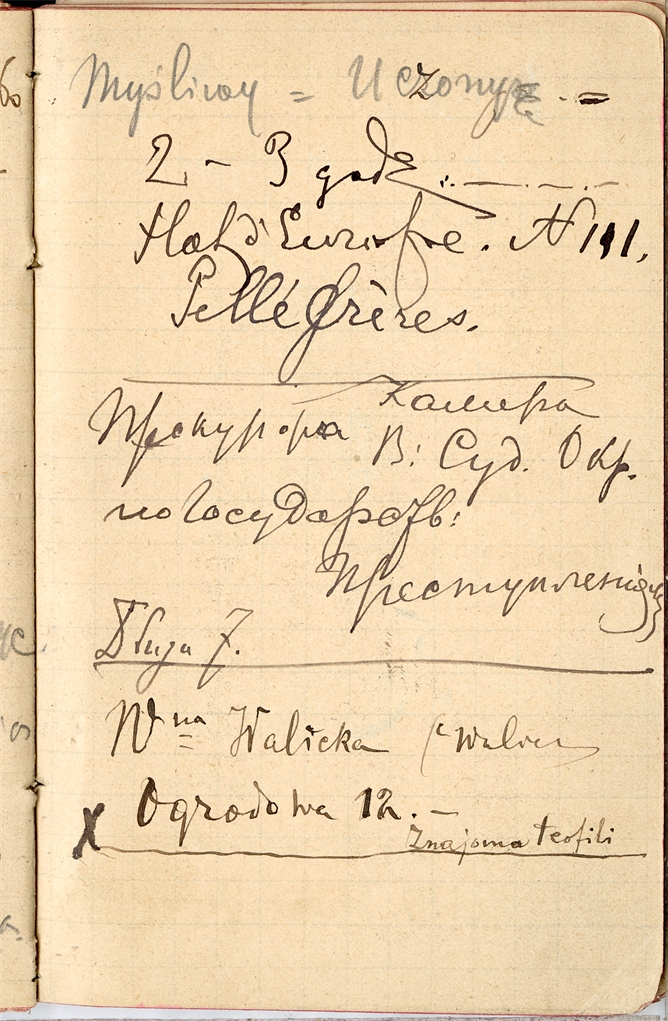 Myśliwy = Uczony =
2 – 3 godz.
Hot d'Europe. N 111.
Pellé frères.
Камера
Прокурора В: Суд. Окр.
по Государств:
Преступленіямъ
Długa 7.
Wna Walicka
Ogrodowa 12. –
X Znajoma Teofili